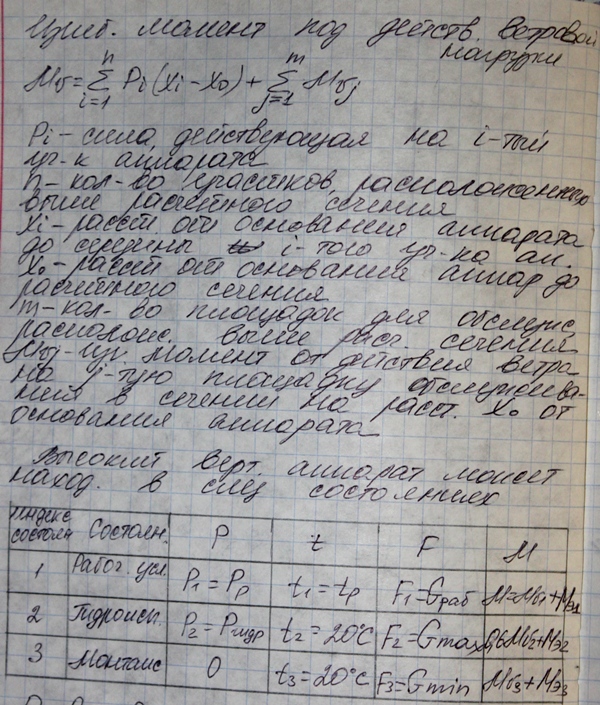 Изгиб. момент под действ. ветровой
нагрузки
Mv = n∑i=1 Pi (xi - x0) + m∑j=1 Mvj
Pi - сила, действующая на i-тый
уч-к аппарата
n - кол-во участков, расположенных
выше расчетного сечения
xi - расст. от основания аппарата
до середины i-того уч-ка ап.
x0 - расст от основания аппар до
расчетного сечения
m - кол-во площадок для обслуж,
располож. выше расч. сечения
Mvj - изг момент от действия ветра
на j-тую площадку обслужива-
ния в сечении на расст. x0 от
основания аппарата
Высокий верт. аппарат может
наход. в след состояниях
индекс состоян Состоян. P t F M
1 Рабоч. усл. P1 = Pp t1 = tp F1 = Gраб M = Mv1 + Mэ1
2 Гидроисп. P2 = Pгидр t2 = 20°C F2 = Gmax 0,6Mv2 + Mэ2
3 Монтаж 0 t3 = 20°C F3 = Gmin Mv3 + Mэ3